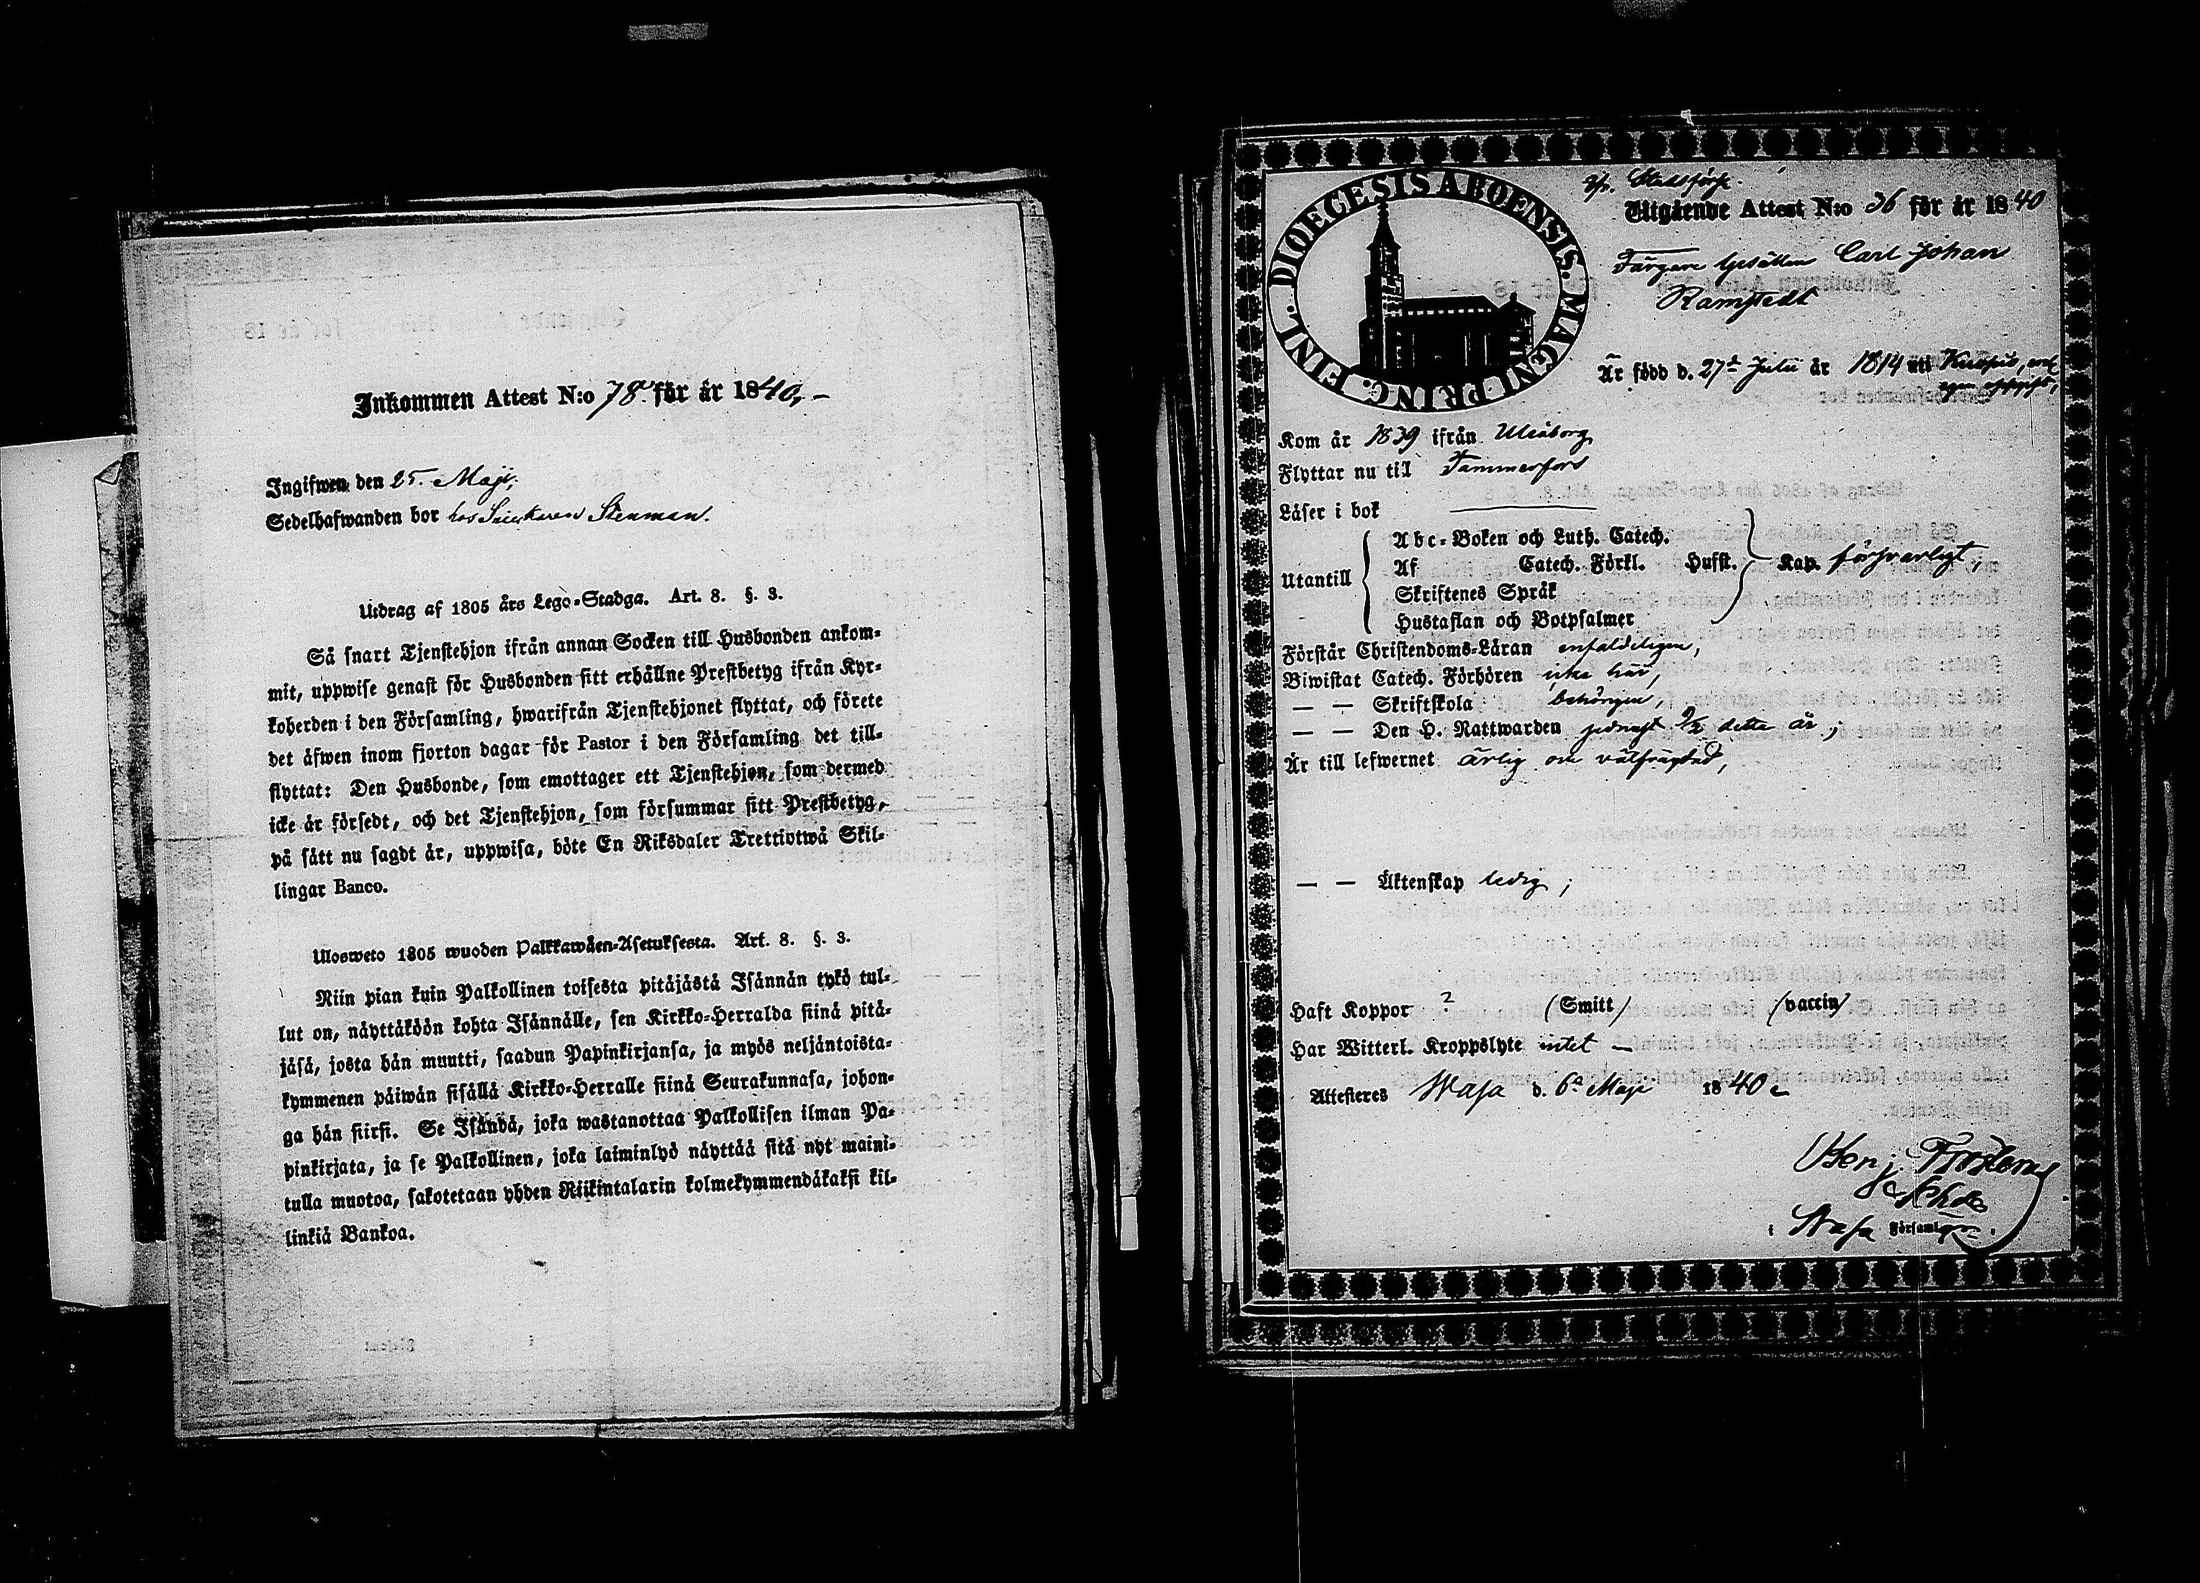 Inkommen Attest N:o 78 för år 1840,-
Ingifwen den 25. Maji,
Sedelhafwanden bor hos Snickaren Stenman.
Utdrag af 1805 års Lego-Stadga. Art. 8. §. 3.
Så snart Tjenstehjon ifrån annan Socken till Husbonden ankom-
mit, uppwise genast för Husbonden sitt erhållne Prestbetyg ifrån Kyr-
koherden i den Församling, hwarifrån Tjenstehjonet flyttat, och förete
det äfwen inom fjorton dagar för Pastor i den Församling det till-
flyttat: Den Husbonde, som emottager ett Tjenstehjon, som dermed
icke är försedt, och det Tjenstehjon, som försummar sitt Prestbetyg,
på sätt nu sagdt är, uppwisa, böte En Riksdaler Trettiotwå Skil-
lingar Banco.
Ulosweto 1805 wuoden Palkkawäen-Asetuksesta. Art. 8. §. 3.
Niin pian kuin Palkollinen toisesta pitäjästä Isännän tykö tul-
lut on, näyttäköön kohta Isännälle, sen Kirkko-Herralda siinä pitä-
jäsä, josta hän muutti, saadun Papinkirjansa, ja myös neljäntoista-
kymmenen päiwän sisällä Kirkko-Herralle siinä Seurakunnasa, johon-
ga hän siirsi. Se Isändä, joka wastanottaa Palkollisen ilman Pa-
pinkirjata, ja se Palkollinen, joka laiminlyö näyttää sitä nyt maini-
tulla muotoa, sakotetaan yhden Riikintalarin kolmekymmendäkaksi kil-
linkiä Bankoa.
DIOECESIS ABOENSIS. MAGNI PRINC. FINL.
Stadsförs.
Utgående Attest N:o 36 för år 1840
Färgare Gesällen Carl Johan
Ramstedt
Är född d. 27de Julii år 1814 uti Kuopio, enl
egen uppgift,
Kom år 1839 ifrån Uleåborg
Flyttar nu till Tammerfors
Läser i bok
Utantill
Abc-Boken och Luth. Catech.
Af Catech. Förkl. Husst. Kap. försvarligt,
Skriftenes Språk
Hustaflan och Botpsalmer
Förstår Christendoms-Läran enfaldeligen,
Biwistat Catech. Förhören icke här,
— — Skriftskola behörigen,
— — Den H. Nattwarden sednast 9/2 detta år,
Är till lefwernet ärlig och välfrägdad,
— — Äktenskap ledig;
Haft Koppor ? (Smitt) (vaccin)
Har Witterl. Kroppslyte intet —
Attesteres Wasa d. 6e Maji 1840
Benj
i Wasa Församl